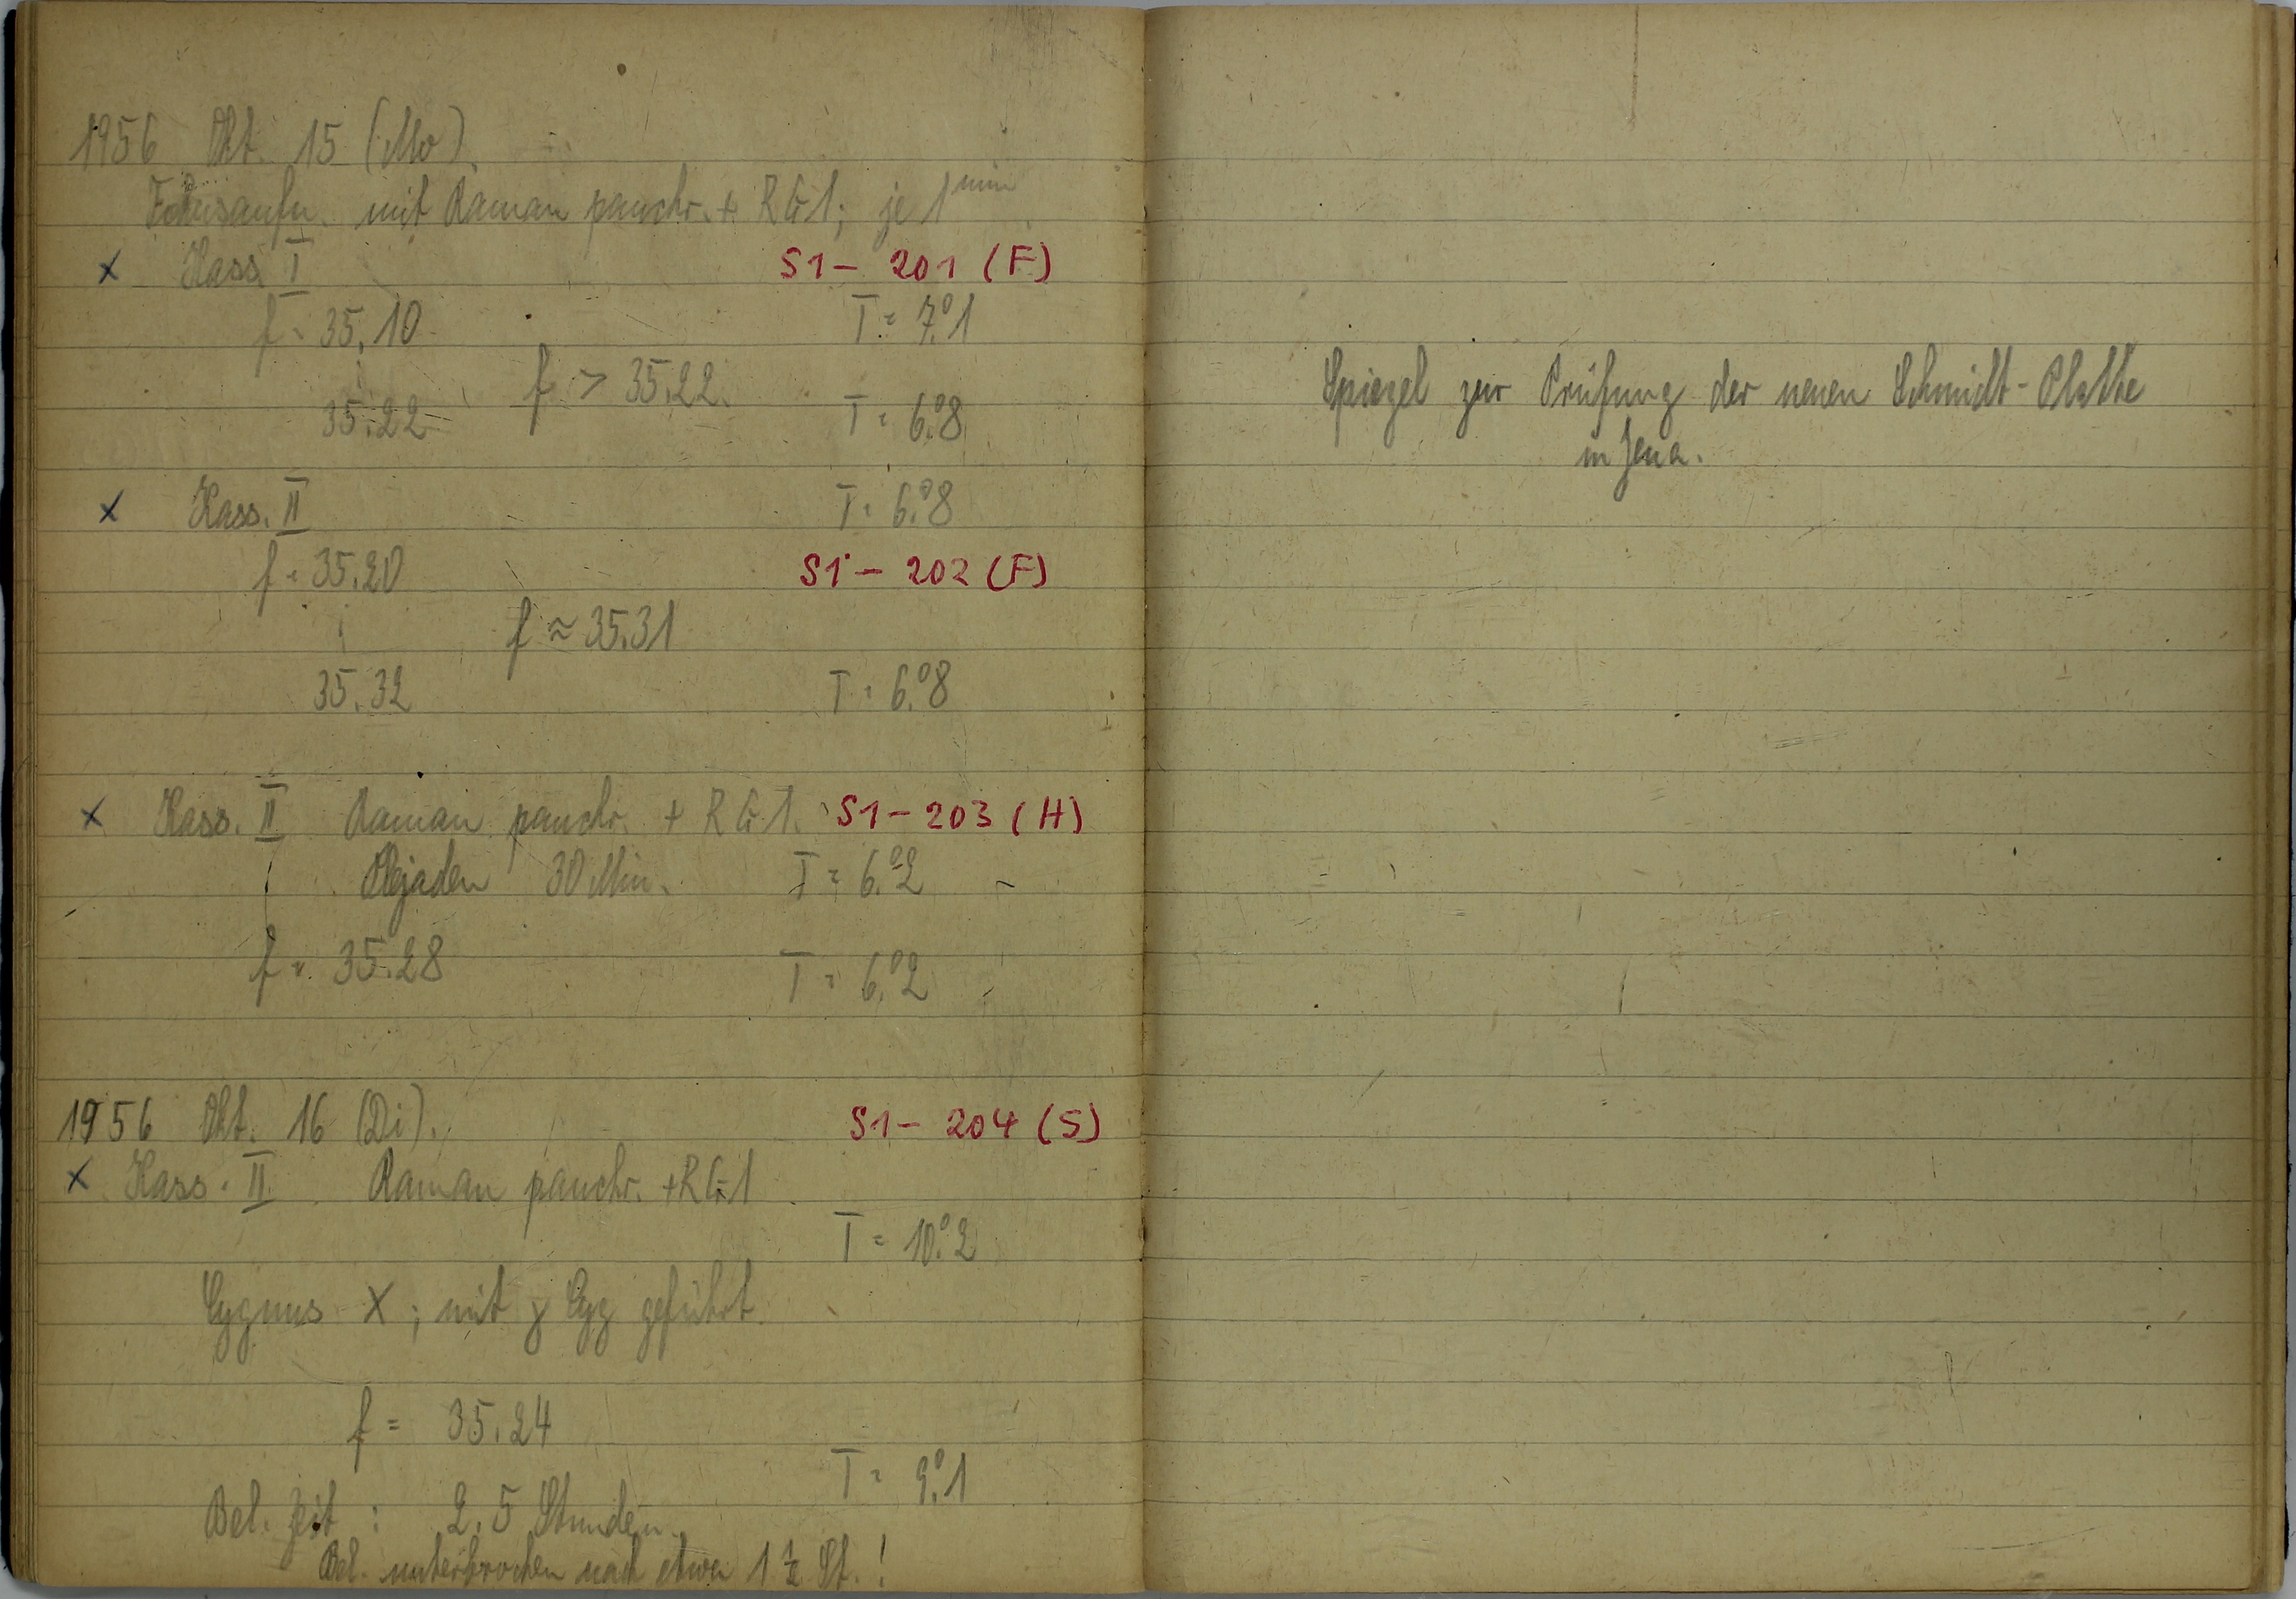 1956 Okt. 15 (Mo).
Fokusaufn. mit Raman panchr. + RG1; je 1 min
x Kass. I S1 - 201 (F)
f = 35.10 T = 7°.1
f > 35.22.
35.22 T = 6°.8
x Kass. II T = 6°.8
f = 35.20 S1 - 202 (F)
f ≈ 35.31
35.32 T = 6°.8
x Kass. II Raman panchr. + RG1. S1 - 203 (H)
Plejaden 30 Min. T = 6°.2
f = 35.28 T = 6°.2
1956 Okt. 16 (Di). S1 - 204 (S)
x Kass. II Raman panchr. + RG1
T = 10°.2
Cygnus X; mit γ Cyg geführt.
f = 35.24
T = 9°.1
Bel. zeit : 2.5 Stunden.
Bel. unterbrochen nach etwa 1 1/2 St. !
Spiegel zur Prüfung der neuen Schmidt-Platte
in Jena.